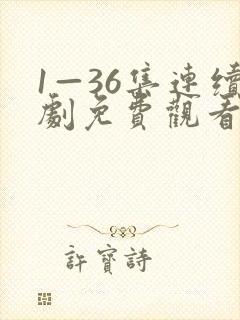 1—36集連續
劇免費觀看
許寶詩